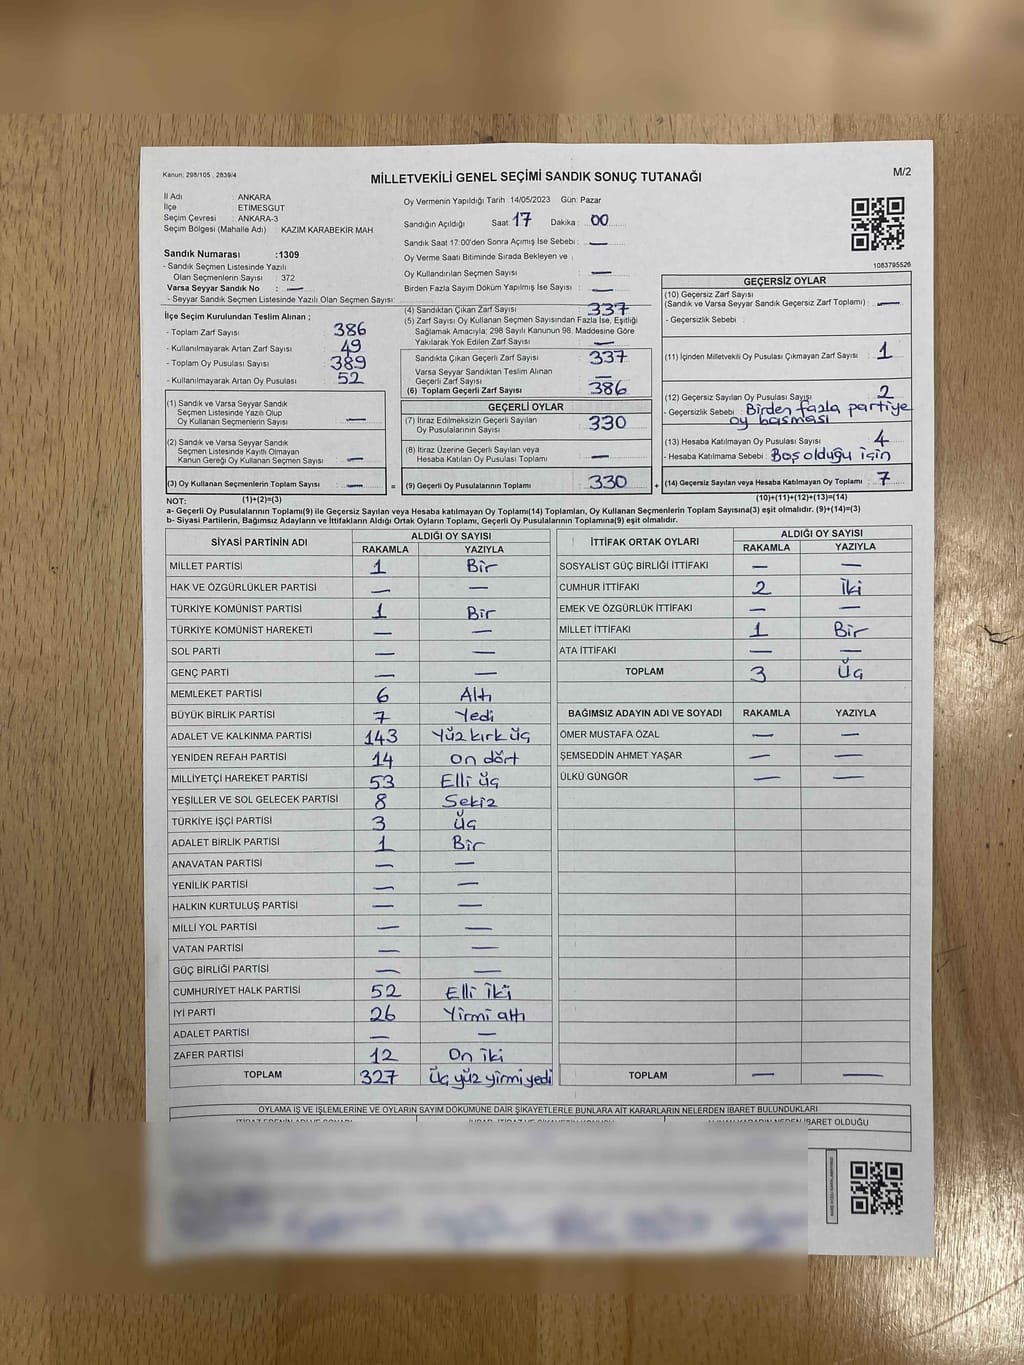 Kanun; 298/105 , 2839/4
MİLLETVEKİLİ GENEL SEÇİMİ SANDIK SONUÇ TUTANAĞI
M/2
İl Adı : ANKARA
İlçe : ETİMESGUT
Seçim Çevresi : ANKARA-3
Seçim Bölgesi (Mahalle Adı) : KAZIM KARABEKİR MAH.
Sandık Numarası :1309
- Sandık Seçmen Listesinde Yazılı
Olan Seçmenlerin Sayısı : 372
Varsa Seyyar Sandık No : —
- Seyyar Sandık Seçmen Listesinde Yazılı Olan Seçmen Sayısı:
Oy Vermenin Yapıldığı Tarih 14/05/2023 Gün: Pazar
Sandığın Açıldığı Saat 17 Dakika : 00
Sandık Saat 17:00'den Sonra Açımış İse Sebebi : —
Oy Verme Saati Bitiminde Sırada Bekleyen ve
Oy Kullandırılan Seçmen Sayısı : —
Birden Fazla Sayım Döküm Yapılmış İse Sayısı : —
1083795526
İlçe Seçim Kurulundan Teslim Alınan ;
- Toplam Zarf Sayısı : 386
- Kullanılmayarak Artan Zarf Sayısı : 49
- Toplam Oy Pusulası Sayısı : 389
- Kullanılmayarak Artan Oy Pusulası : 52
(1) Sandık ve Varsa Seyyar Sandık
Seçmen Listesinde Yazılı Olup
Oy Kullanan Seçmenlerin Sayısı : —
(2) Sandık ve Varsa Seyyar Sandık
Seçmen Listesinde Kayıtlı Olmayan
Kanun Gereği Oy Kullanan Seçmen Sayısı : —
(3) Oy Kullanan Seçmenlerin Toplam Sayısı : — =
(4) Sandıktan Çıkan Zarf Sayısı : 337
(5) Zarf Sayısı Oy Kullanan Seçmen Sayısından Fazla İse, Eşitliği
Sağlamak Amacıyla; 298 Sayılı Kanunun 98. Maddesine Göre
Yakılarak Yok Edilen Zarf Sayısı : —
Sandıkta Çıkan Geçerli Zarf Sayısı : 337
Varsa Seyyar Sandıktan Teslim Alınan
Geçerli Zarf Sayısı : —
(6) Toplam Geçerli Zarf Sayısı : 386
GEÇERLİ OYLAR
(7) İtiraz Edilmeksizin Geçerli Sayılan
Oy Pusulalarının Sayısı : 330
(8) İtiraz Üzerine Geçerli Sayılan veya
Hesaba Katılan Oy Pusulası Toplamı : —
(9) Geçerli Oy Pusulalarının Toplamı : 330 +
GEÇERSİZ OYLAR
(10) Geçersiz Zarf Sayısı
(Sandık ve Varsa Seyyar Sandık Geçersiz Zarf Toplamı) : —
- Geçersizlik Sebebi :
(11) İçinden Milletvekili Oy Pusulası Çıkmayan Zarf Sayısı : 1
(12) Geçersiz Sayılan Oy Pusulası Sayısı : 2
- Geçersizlik Sebebi : Birden fazla partiye
oy basması
(13) Hesaba Katılmayan Oy Pusulası Sayısı : 4
- Hesaba Katılmama Sebebi : Boş olduğu için
(14) Geçersiz Sayılan veya Hesaba Katılmayan Oy Toplamı : 7
NOT: (1)+(2)=(3) (10)+(11)+(12)+(13)=(14)
a- Geçerli Oy Pusulalarının Toplamı(9) ile Geçersiz Sayılan veya Hesaba katılmayan Oy Toplamı(14) Toplamları, Oy Kullanan Seçmenlerin Toplam Sayısına(3) eşit olmalıdır. (9)+(14)=(3)
b- Siyasi Partilerin, Bağımsız Adayların ve İttifakların Aldığı Ortak Oyların Toplamı, Geçerli Oy Pusulalarının Toplamına(9) eşit olmalıdır.
SİYASİ PARTİNİN ADI ALDIĞI OY SAYISI
RAKAMLA YAZIYLA
MİLLET PARTİSİ 1 Bir
HAK VE ÖZGÜRLÜKLER PARTİSİ — —
TÜRKİYE KOMÜNİST PARTİSİ 1 Bir
TÜRKİYE KOMÜNİST HAREKETİ — —
SOL PARTİ — —
GENÇ PARTİ — —
MEMLEKET PARTİSİ 6 Altı
BÜYÜK BİRLİK PARTİSİ 7 Yedi
ADALET VE KALKINMA PARTİSİ 143 Yüz kırk üç
YENİDEN REFAH PARTİSİ 14 On dört
MİLLİYETÇİ HAREKET PARTİSİ 53 Elli üç
YEŞİLLER VE SOL GELECEK PARTİSİ 8 Sekiz
TÜRKİYE İŞÇİ PARTİSİ 3 Üç
ADALET BİRLİK PARTİSİ 1 Bir
ANAVATAN PARTİSİ — —
YENİLİK PARTİSİ — —
HALKIN KURTULUŞ PARTİSİ — —
MİLLİ YOL PARTİSİ — —
VATAN PARTİSİ — —
GÜÇ BİRLİĞİ PARTİSİ — —
CUMHURİYET HALK PARTİSİ 52 Elli İki
İYİ PARTİ 26 Yirmi altı
ADALET PARTİSİ — —
ZAFER PARTİSİ 12 On iki
TOPLAM 327 Üç yüz yirmi yedi
İTTİFAK ORTAK OYLARI ALDIĞI OY SAYISI
RAKAMLA YAZIYLA
SOSYALİST GÜÇ BİRLİĞİ İTTİFAKI — —
CUMHUR İTTİFAKI 2 İki
EMEK VE ÖZGÜRLÜK İTTİFAKI — —
MİLLET İTTİFAKI 1 Bir
ATA İTTİFAKI — —
TOPLAM 3 Üç
BAĞIMSIZ ADAYIN ADI VE SOYADI RAKAMLA YAZIYLA
ÖMER MUSTAFA ÖZAL — —
ŞEMSEDDİN AHMET YAŞAR — —
ÜLKÜ GÜNGÖR — —
TOPLAM — —
OYLAMA İŞ VE İŞLEMLERİNE VE OYLARIN SAYIM DÖKÜMÜNE DAİR ŞİKAYETLERLE BUNLARA AİT KARARLARIN NELERDEN İBARET BULUNDUKLARI
İBARET OLDUĞU